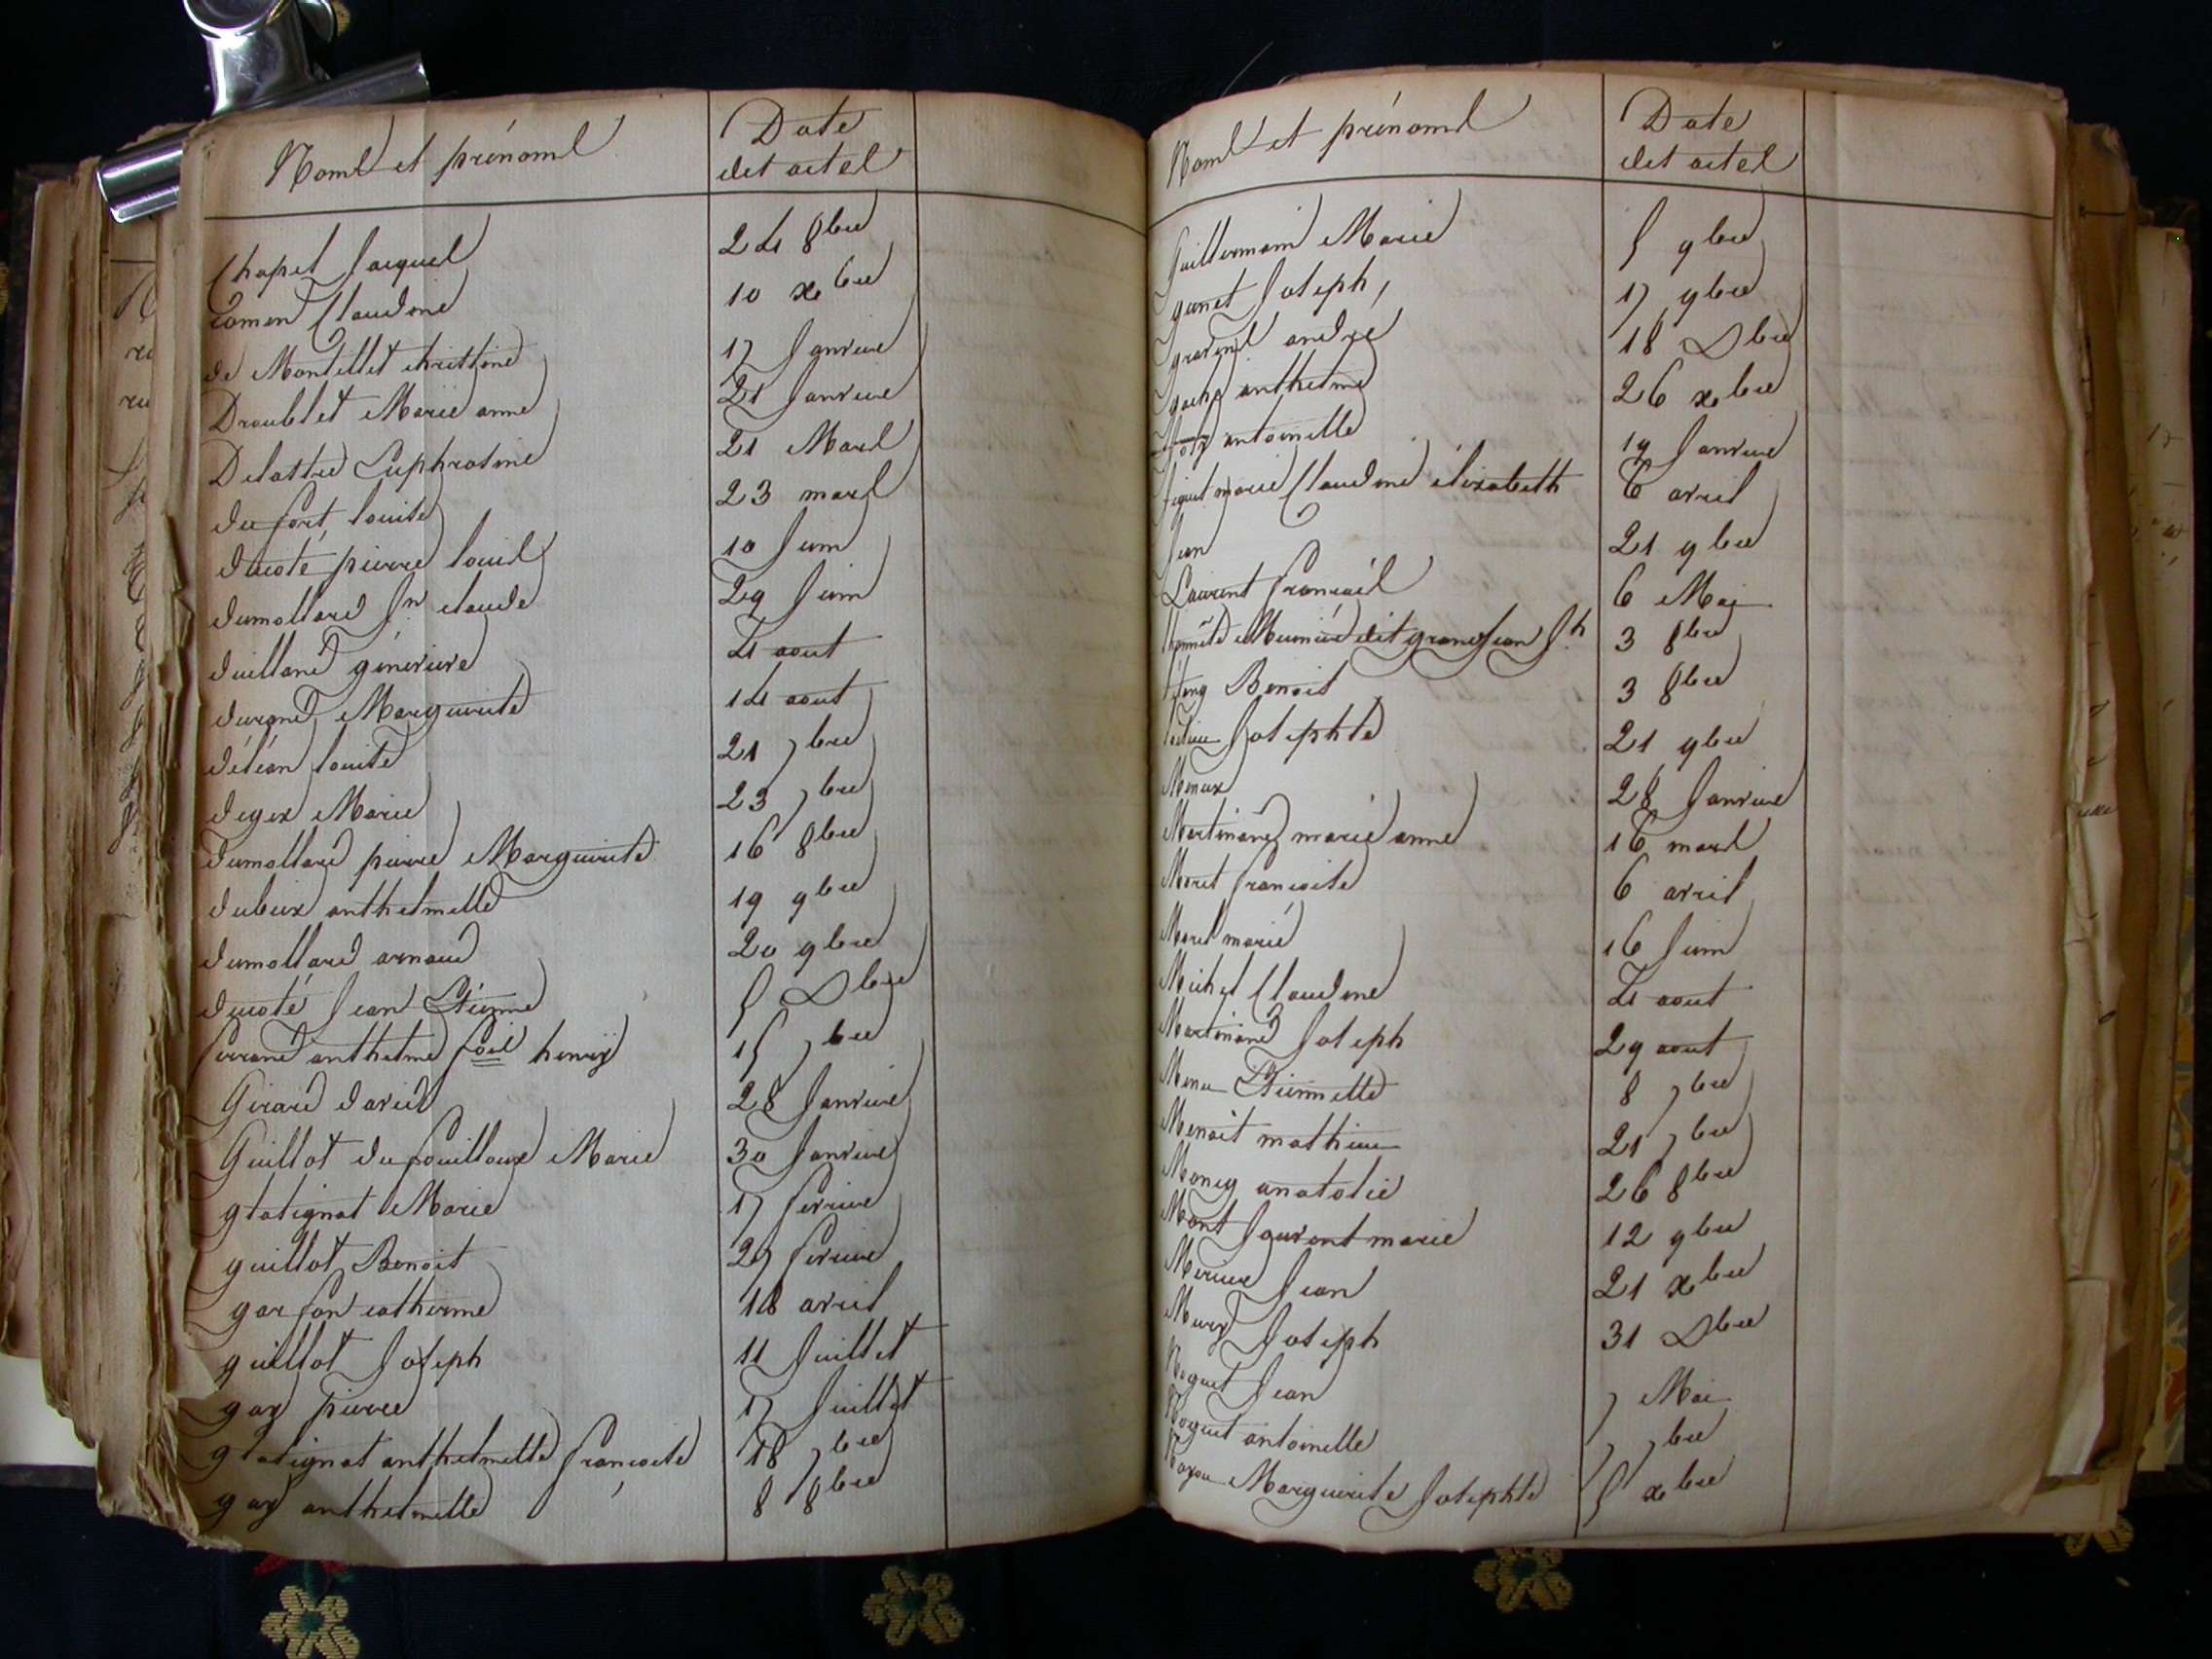 Noms et prénoms Date des actes
Chapel Jacques 24 8bre
Comen Claudine 10 xbre
de Montillet christine 17 Janvier
Droublet Marie anne 21 Janvier
Delastre Euphrosine 21 Mars
dufort louise 23 mars
ducoté pierre louis 10 Juin
dumollard Jn claude 29 Juin
duilland génevieve 4 aout
durand Marguerite 14 aout
déléan louise 21 7bre
degex Marie 23 7bre
Dumollard pierre Marguerite 16 8bre
dubeux anthelmette 19 9bre
dumollard arnaud 20 9bre
ducoté Jean Etienne 5 Dbre
ferrand anthelme fois henry 15 7bre
Girard david 28 Janvier
Guillot dufouilloux Marie 30 Janvier
glatignat Marie 17 fevrier
guillot Benoit 27 fevrier
garson catherine 18 avril
guillot Joseph 11 Juillet
gay pierre 17 Juillet
glatignat anthelmette francoise 18 7bre
gay anthelmette 8 8bre
Noms et prénoms Date des actes
Guillermain Marie 5 9bre
Joseph, 17 9bre
andré 18 Dbre
anthelme 26 xbre
antoinette 19 Janvier
marie Claudine élizabeth 6 avril
Jean 21 9bre
Laurent francois 6 Mai
Meunier dit grand Jean Jh 3 8bre
Benoit 3 8bre
Josephte 21 9bre
Menux 28 Janvier
Martinand marie anne 16 mars
Moret francoise 6 avril
Morel marie 16 Juin
Michel Claudine 4 aout
Martinand Joseph 29 aout
Menu Etiennette 8 7bre
Menait mathieu 21 7bre
Money anatolie 26 8bre
Mont Laurent marie 12 9bre
Mercier Jean 21 xbre
Joseph 31 Dbre
Noguet Jean 7 Mai
Noguet antoinette 7 7bre
Marguerite Josephte 5 xbre